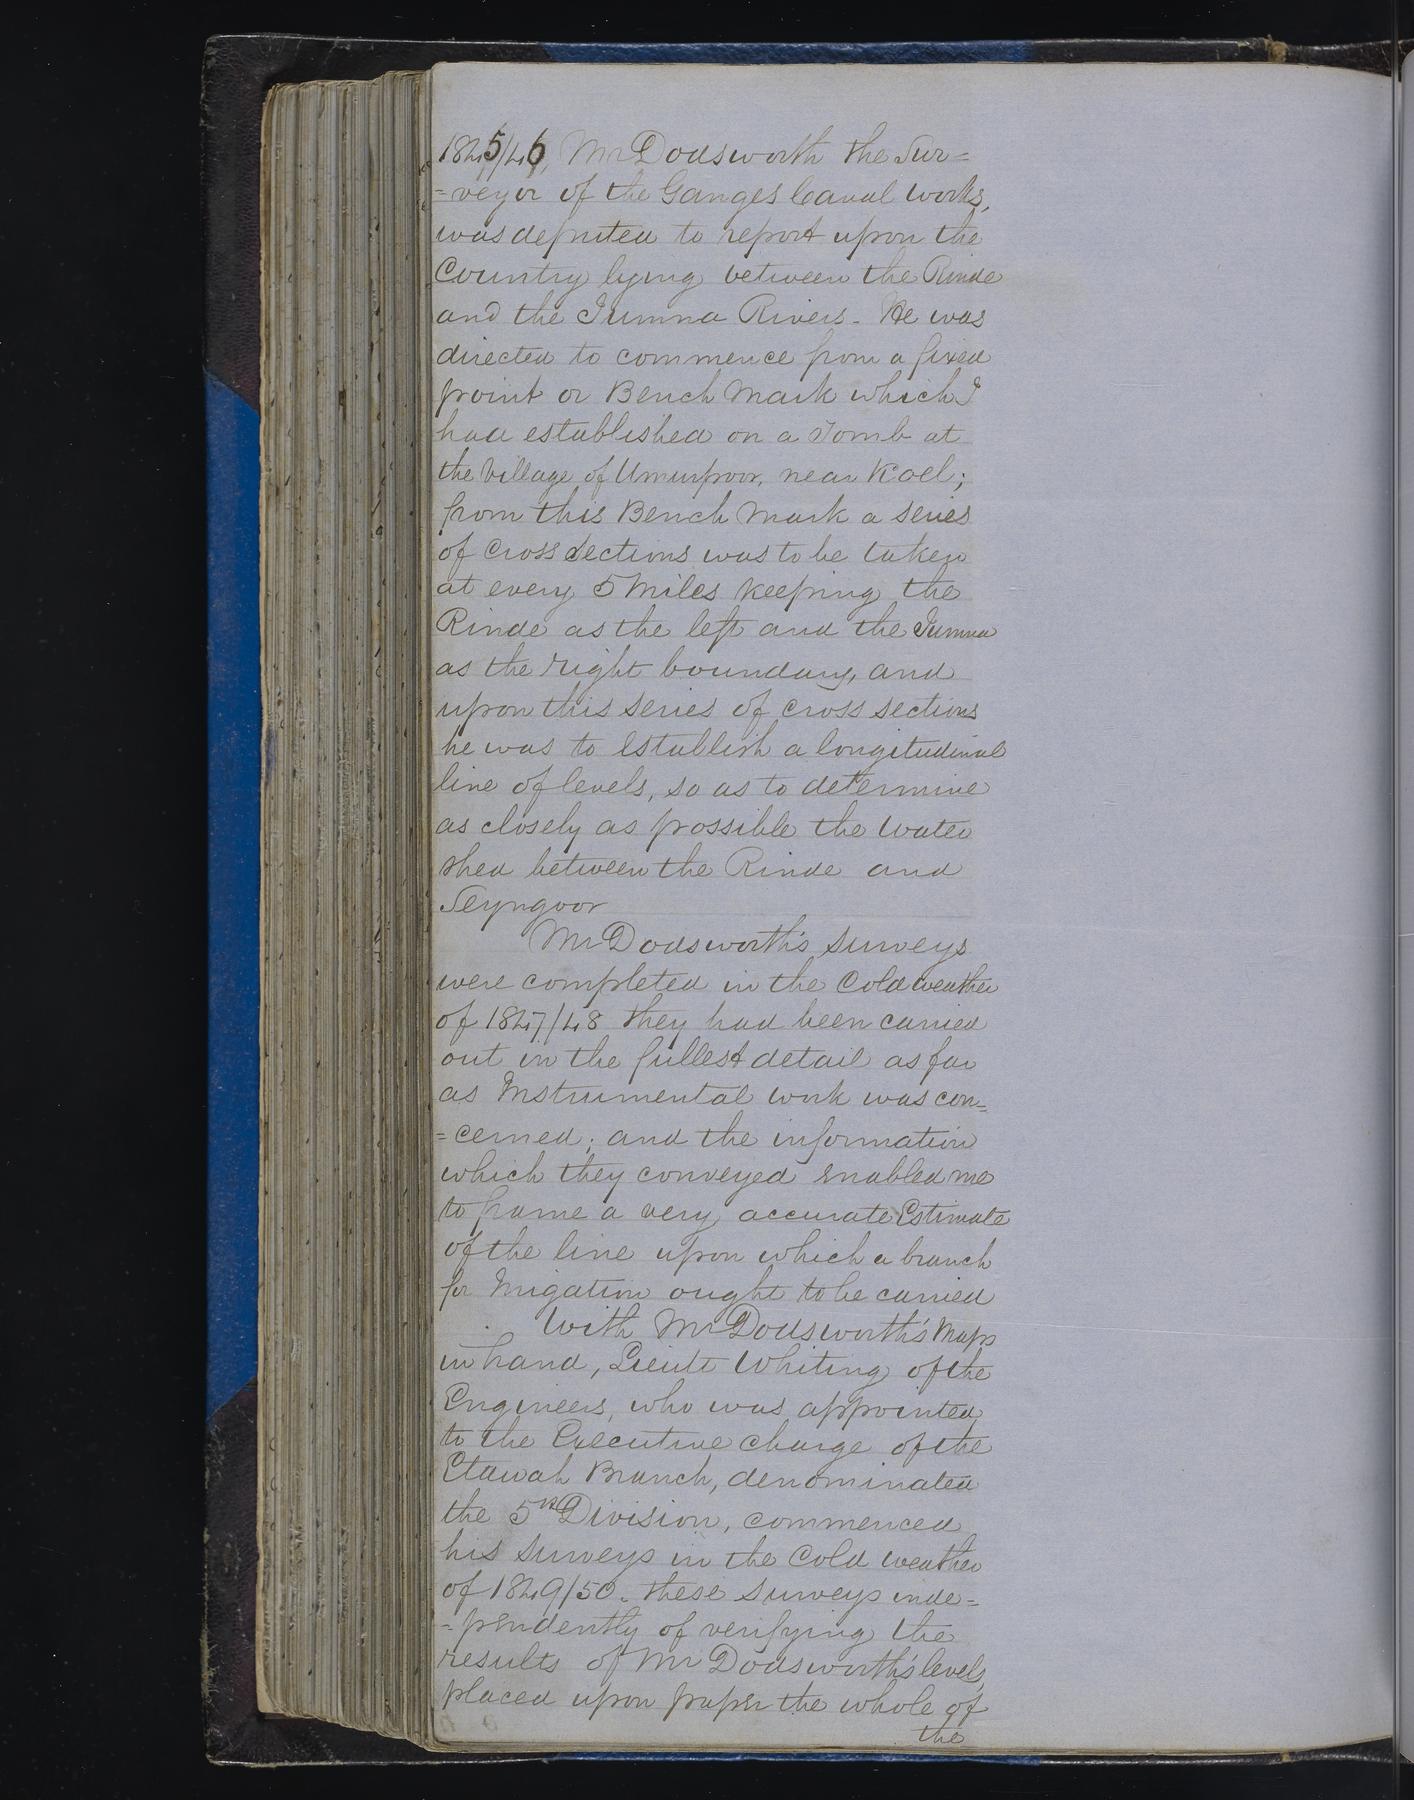 1845/46, Mr Dodsworth the Sur=
=veyor of the Ganges Canal works,
was deputed to report upon the
Country lying between the Rinde
and the Jumna Rivers - He was
directed to commence from a fixed
point or Bench Mark which I
had established on a Tomb at
the Village of Umurpoor, near Koel;
from this Bench Mark a series
of Cross Sections was to be taken
at every 5 Miles keeping the
Rinde as the left and the Jumna
as the right boundary, and
upon this series of cross sections
he was to establish a longitudinal
line of levels, so as to determine
as closely as possible the water
shed between the Rinde and
Seyngoor
Mr Dodsworth's surveys
were completed in the Cold weather
of 1847/48 they had been carried
out in the fullest detail as far
as Instrumental work was con=
=cerned; and the information
which they conveyed enabled me
to frame a very accurate Estimate
of the line upon which a branch
for Irrigation ought to be carried
With Mr Dodsworth's Maps
in hand, Lieut Whiting of the
Engineers, who was appointed
to the Executive charge of the
Etawah Branch, denominated
the 5th Division, commenced
his Surveys in the Cold weather
of 1849/50. these surveys inde=
=pendently of verifying the
results of Mr Dodsworth's levels,
placed upon paper the whole of
the